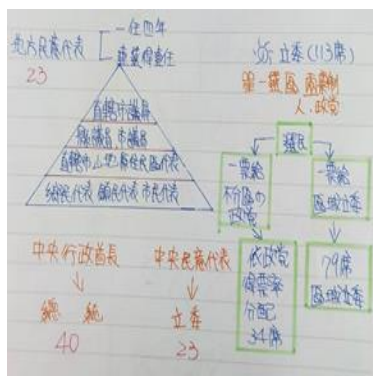 地方民意代表
一任四年
連選得連任
23
直轄市議員
縣議員、市議員
直轄市山地原住民區代表
鄉民代表 鎮民代表 市民代表
中央行政首長
總統
40
中央民意代表
立委
23
立委(113席)
單一選區 兩票制
人、政党
選民
一票給
不分區の
政党
依政党
得票率
分配
34席
一票給
區域立委
79席
區域立委